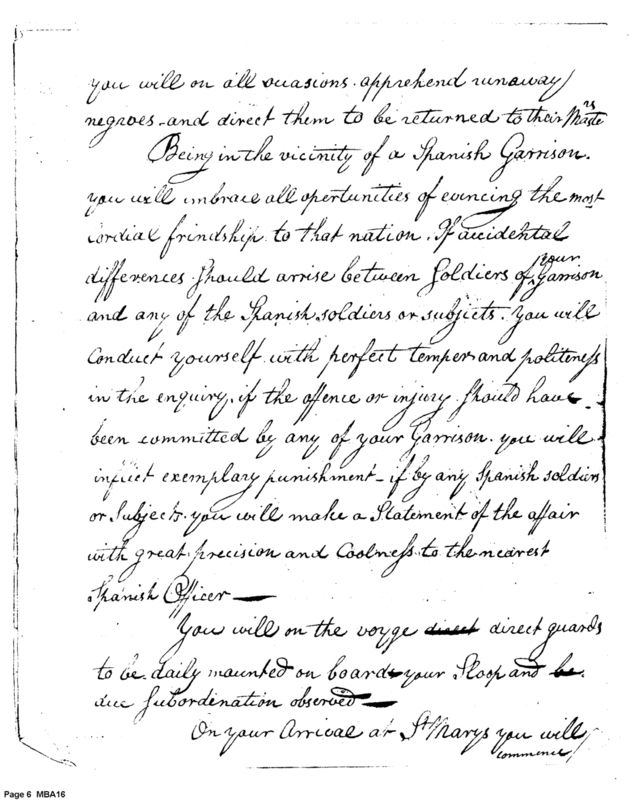 you will on all ocasions. apprehend runaway
negroes - and direct them to be returned to their Masters
Being in the vicinity of a Spanish Garrison.
you will imbrace all opertunities of evincing the most
Cordial frindship to that nation. If accidental
differences Should arrise between Soldiers of your Garrison
and any of the Spanish soldiers or subjects. You will
Conduct yourself with perfect temper and politeness
in the enquiry. if the offence or injury Should have
been committed by any of your Garrison. you will
inflict exemplary punishment - if by any Spanish soldiers
or Subjects. you will make a Statement of the affair
with great precision and Coolness to the nearest
Spanish Officer —
You will on the voyge direct direct guards
to be daily mounted on board your Sloop and be
due Subordenation observed —
On your Arrival at St Marys you will
commence
Page 6 MBA16